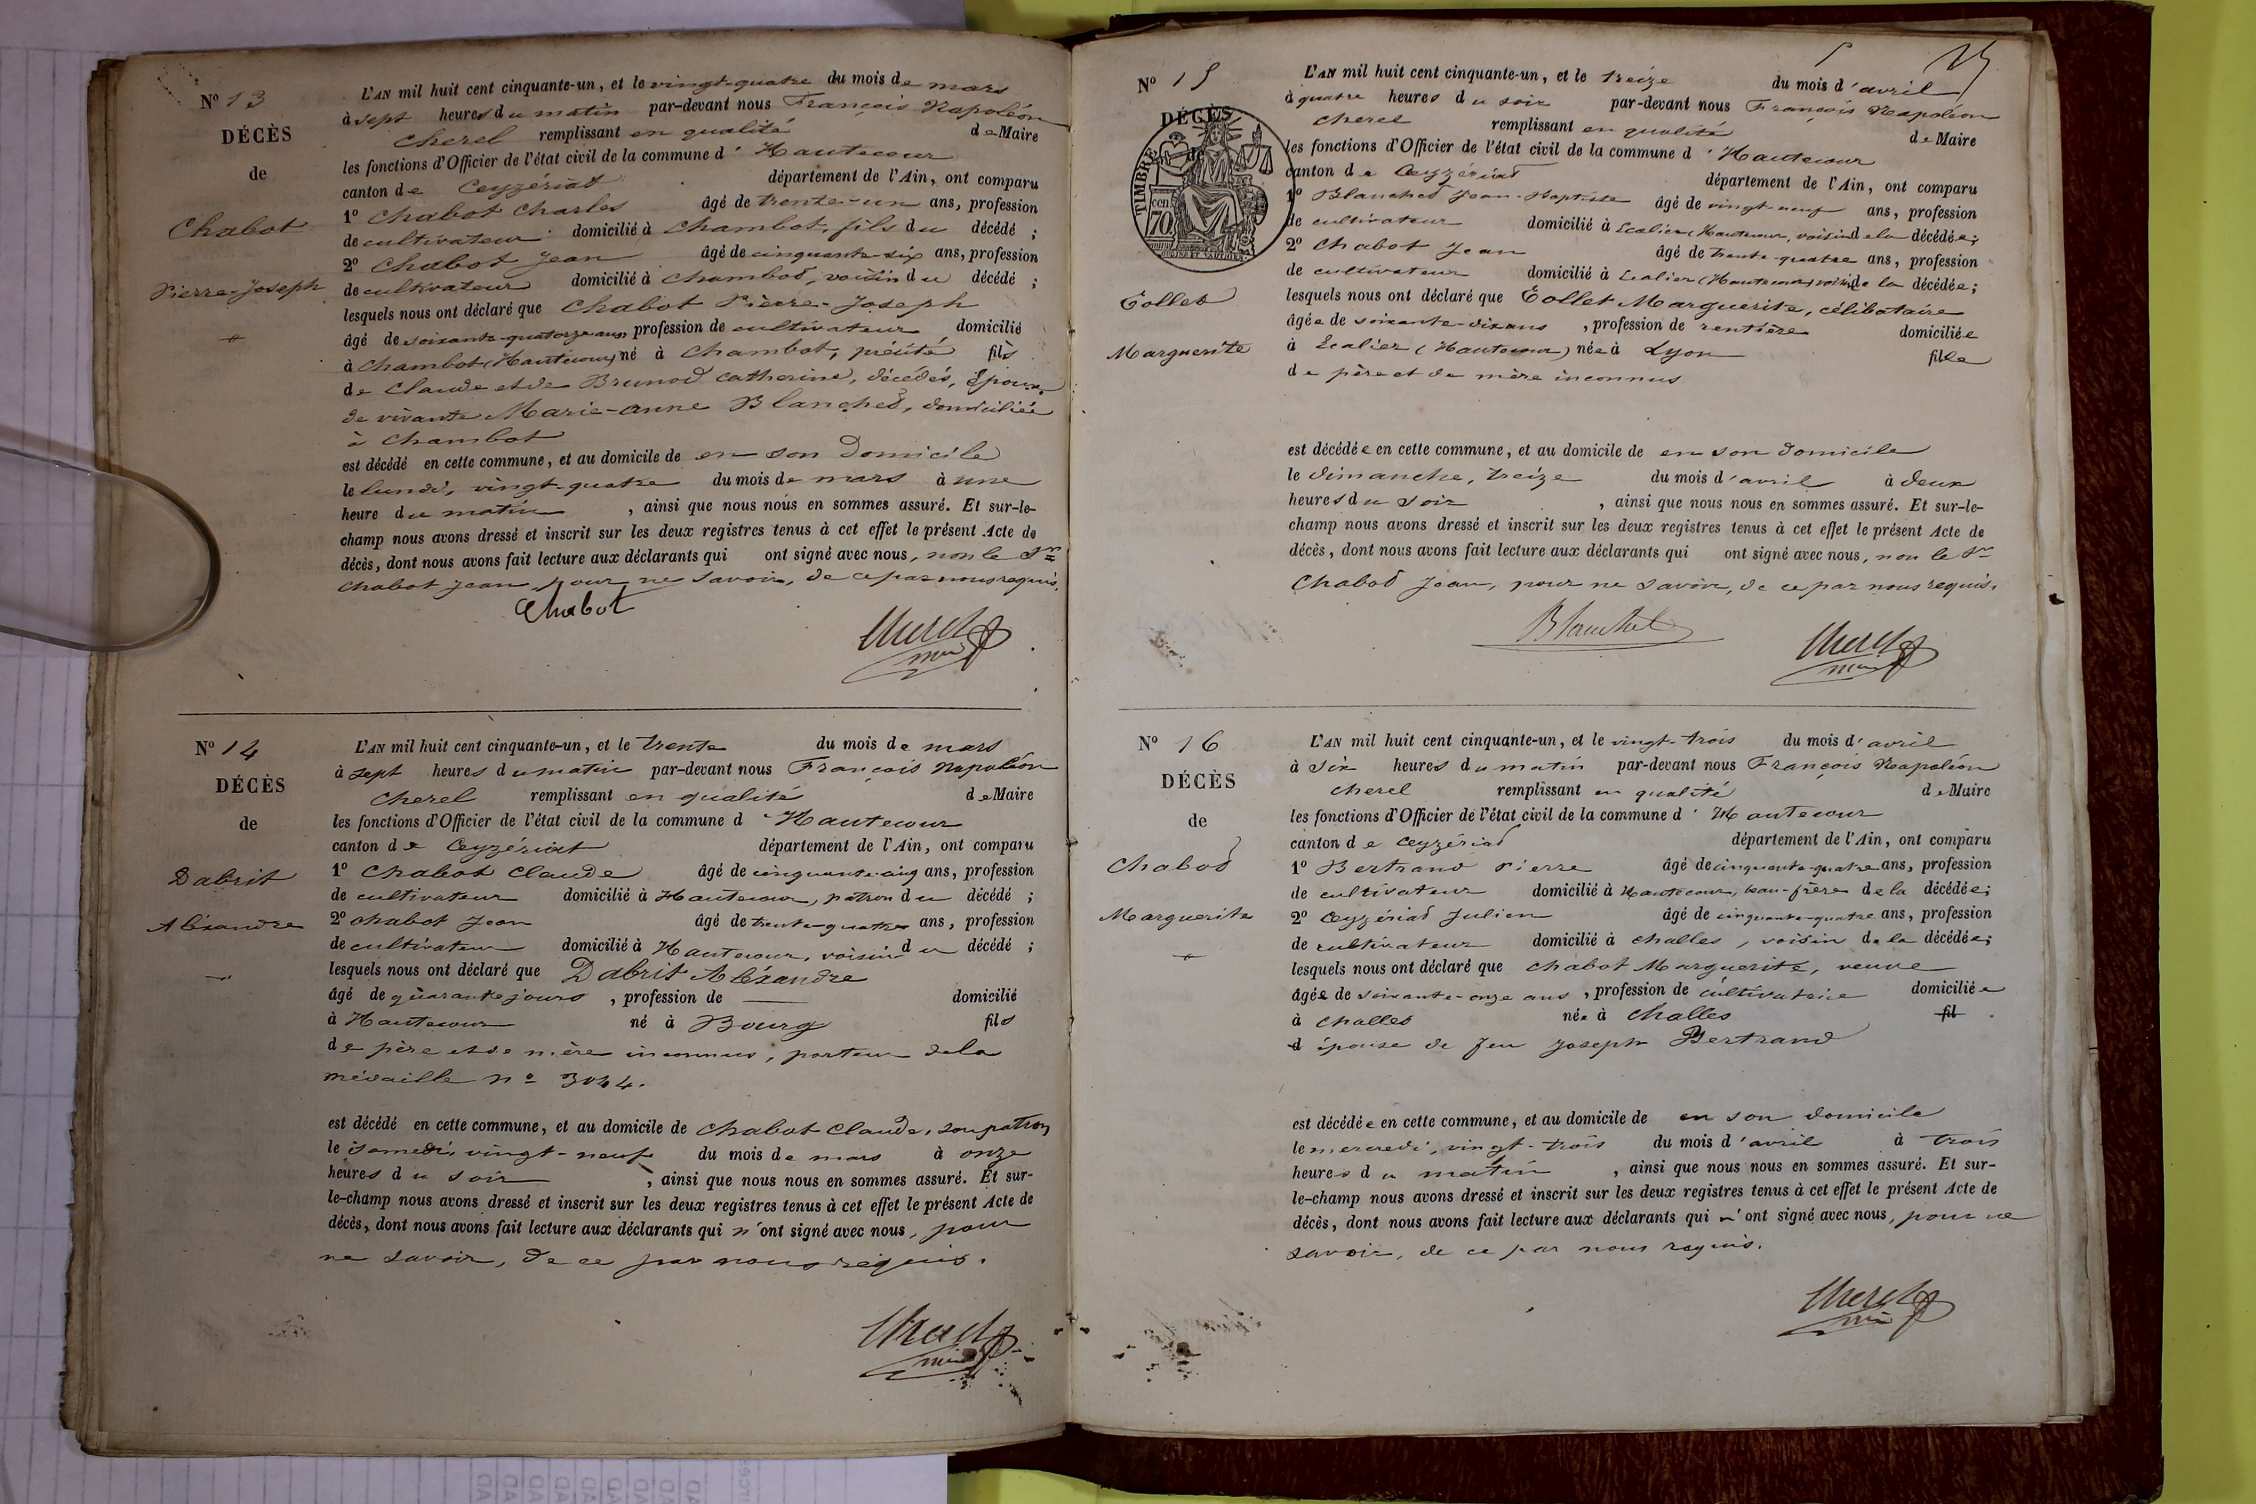 N.º 13
DÉCÈS
de
Chabot
Pierre-Joseph
L'AN mil huit cent cinquante-un, et le vingt-quatre du mois de mars
à sept heures du matin par-devant nous François Napoléon
Cherel remplissant en qualité de Maire
les fonctions d'Officier de l'état civil de la commune d'Hautecour
canton de Ceyzériat département de l'Ain, ont comparu
1º Chabot Charles âgé de trente-un ans, profession
de cultivateur domicilié à Chambot, fils du décédé ;
2º Chabot Jean âgé de cinquante-six ans, profession
de cultivateur domicilié à Chambod, voisin du décédé ;
lesquels nous ont déclaré que Chabot Pierre-Joseph
âgé de soixante-quatorze ans, profession de cultivateur domicilié
à Chambot (Hautecour) né à Chambot, précité fils
de Claude et de Brunod Catherine, décédés, époux
de vivante Marie-Anne Blanched, domiciliée
à Chambot
est décédé en cette commune, et au domicile de en son domicile
le lundi, vingt-quatre du mois de mars à une
heure du matin, ainsi que nous nous en sommes assuré. Et sur-le-
champ nous avons dressé et inscrit sur les deux registres tenus à cet effet le présent Acte de
décès, dont nous avons fait lecture aux déclarants qui ont signé avec nous, non le Sr
Chabot Jean, pour ne savoir, de ce par nous requis.
Chabot
Cherel
N.º 14
DÉCÈS
de
Dabrit
Aléxandre
L'AN mil huit cent cinquante-un, et le trente du mois de mars
à sept heures du matin par-devant nous François Napoléon
Cherel remplissant en qualité de Maire
les fonctions d'Officier de l'état civil de la commune d'Hautecour
canton de Ceyzériat département de l'Ain, ont comparu
1º Chabot Claude âgé de cinquante-cinq ans, profession
de cultivateur domicilié à Hautecour, patron du décédé ;
2º Chabot Jean âgé de trente-quatre ans, profession
de cultivateur domicilié à Hautecour, voisin du décédé ;
lesquels nous ont déclaré que Dabrit Aléxandre
âgé de quarante jours, profession de —— domicilié
à Hautecour né à Bourg fils
de père et de mère inconnus, porteur de la
médaille nº 3044.
est décédé en cette commune, et au domicile de Chabot Claude, son patron
le samedi, vingt-neuf du mois de mars à onze
heures du soir, ainsi que nous nous en sommes assuré. Et sur-
le-champ nous avons dressé et inscrit sur les deux registres tenus à cet effet le présent Acte de
décès, dont nous avons fait lecture aux déclarants qui n'ont signé avec nous, pour
ne savoir, de ce par nous requis.
Cherel
N.º 15
DÉCÈS
de
TIMBRE
70 cen
Tollet
Marguerite
L'AN mil huit cent cinquante-un, et le treize du mois d'avril
à quatre heures du soir par-devant nous François Napoléon
Cherel remplissant en qualité de Maire
les fonctions d'Officier de l'état civil de la commune d'Hautecour
canton de Ceyzériad département de l'Ain, ont comparu
1º Blanched Jean-Baptiste âgé de vingt-neuf ans, profession
de cultivateur domicilié à (Hautecour, voisin de la décédée ;
2º Chabot Jean âgé de trente-quatre ans, profession
de cultivateur domicilié à (Hautecour) voisin de la décédée ;
lesquels nous ont déclaré que Tollet Marguerite, célibataire
âgée de soixante-dix ans, profession de rentière domiciliée
à (Hautecour) née à Lyon fille
de père et de mère inconnus
est décédée en cette commune, et au domicile de en son domicile
le dimanche, treize du mois d'avril à deux
heures du soir, ainsi que nous nous en sommes assuré. Et sur-le-
champ nous avons dressé et inscrit sur les deux registres tenus à cet effet le présent Acte de
décès, dont nous avons fait lecture aux déclarants qui ont signé avec nous, non le Sr
Chabod Jean, pour ne savoir, de ce par nous requis.
Blanchet
Cherel
N.º 16
DÉCÈS
de
Chabod
Marguerite
L'AN mil huit cent cinquante-un, et le vingt-trois du mois d'avril
à six heures du matin par-devant nous François Napoléon
Cherel remplissant en qualité de Maire
les fonctions d'Officier de l'état civil de la commune d'Hautecour
canton de Ceyzériad département de l'Ain, ont comparu
1º Bertrand Pierre âgé de cinquante-quatre ans, profession
de cultivateur domicilié à Hautecour, beau-frère de la décédée ;
2º Ceyzériad Julien âgé de cinquante-quatre ans, profession
de cultivateur domicilié à Challes, voisin de la décédée ;
lesquels nous ont déclaré que Chabot Marguerite, veuve
âgée de soixante-onze ans, profession de cultivatrice domiciliée
à Challes née à Challes fil
d épouse de feu Joseph Bertrand
est décédée en cette commune, et au domicile de en son domicile
le mercredi, vingt-trois du mois d'avril à trois
heures du matin, ainsi que nous nous en sommes assuré. Et sur-
le-champ nous avons dressé et inscrit sur les deux registres tenus à cet effet le présent Acte de
décès, dont nous avons fait lecture aux déclarants qui n'ont signé avec nous, pour ne
savoir, de ce par nous requis.
Cherel